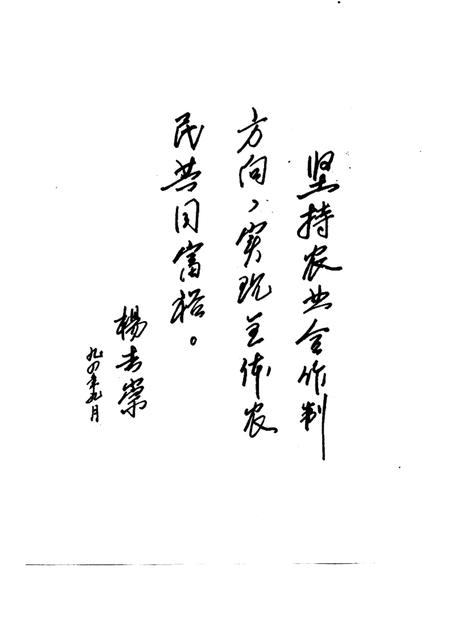 坚持农业合作制
方向，实现全体农
民共同富裕。
杨吉崇
九四年九月